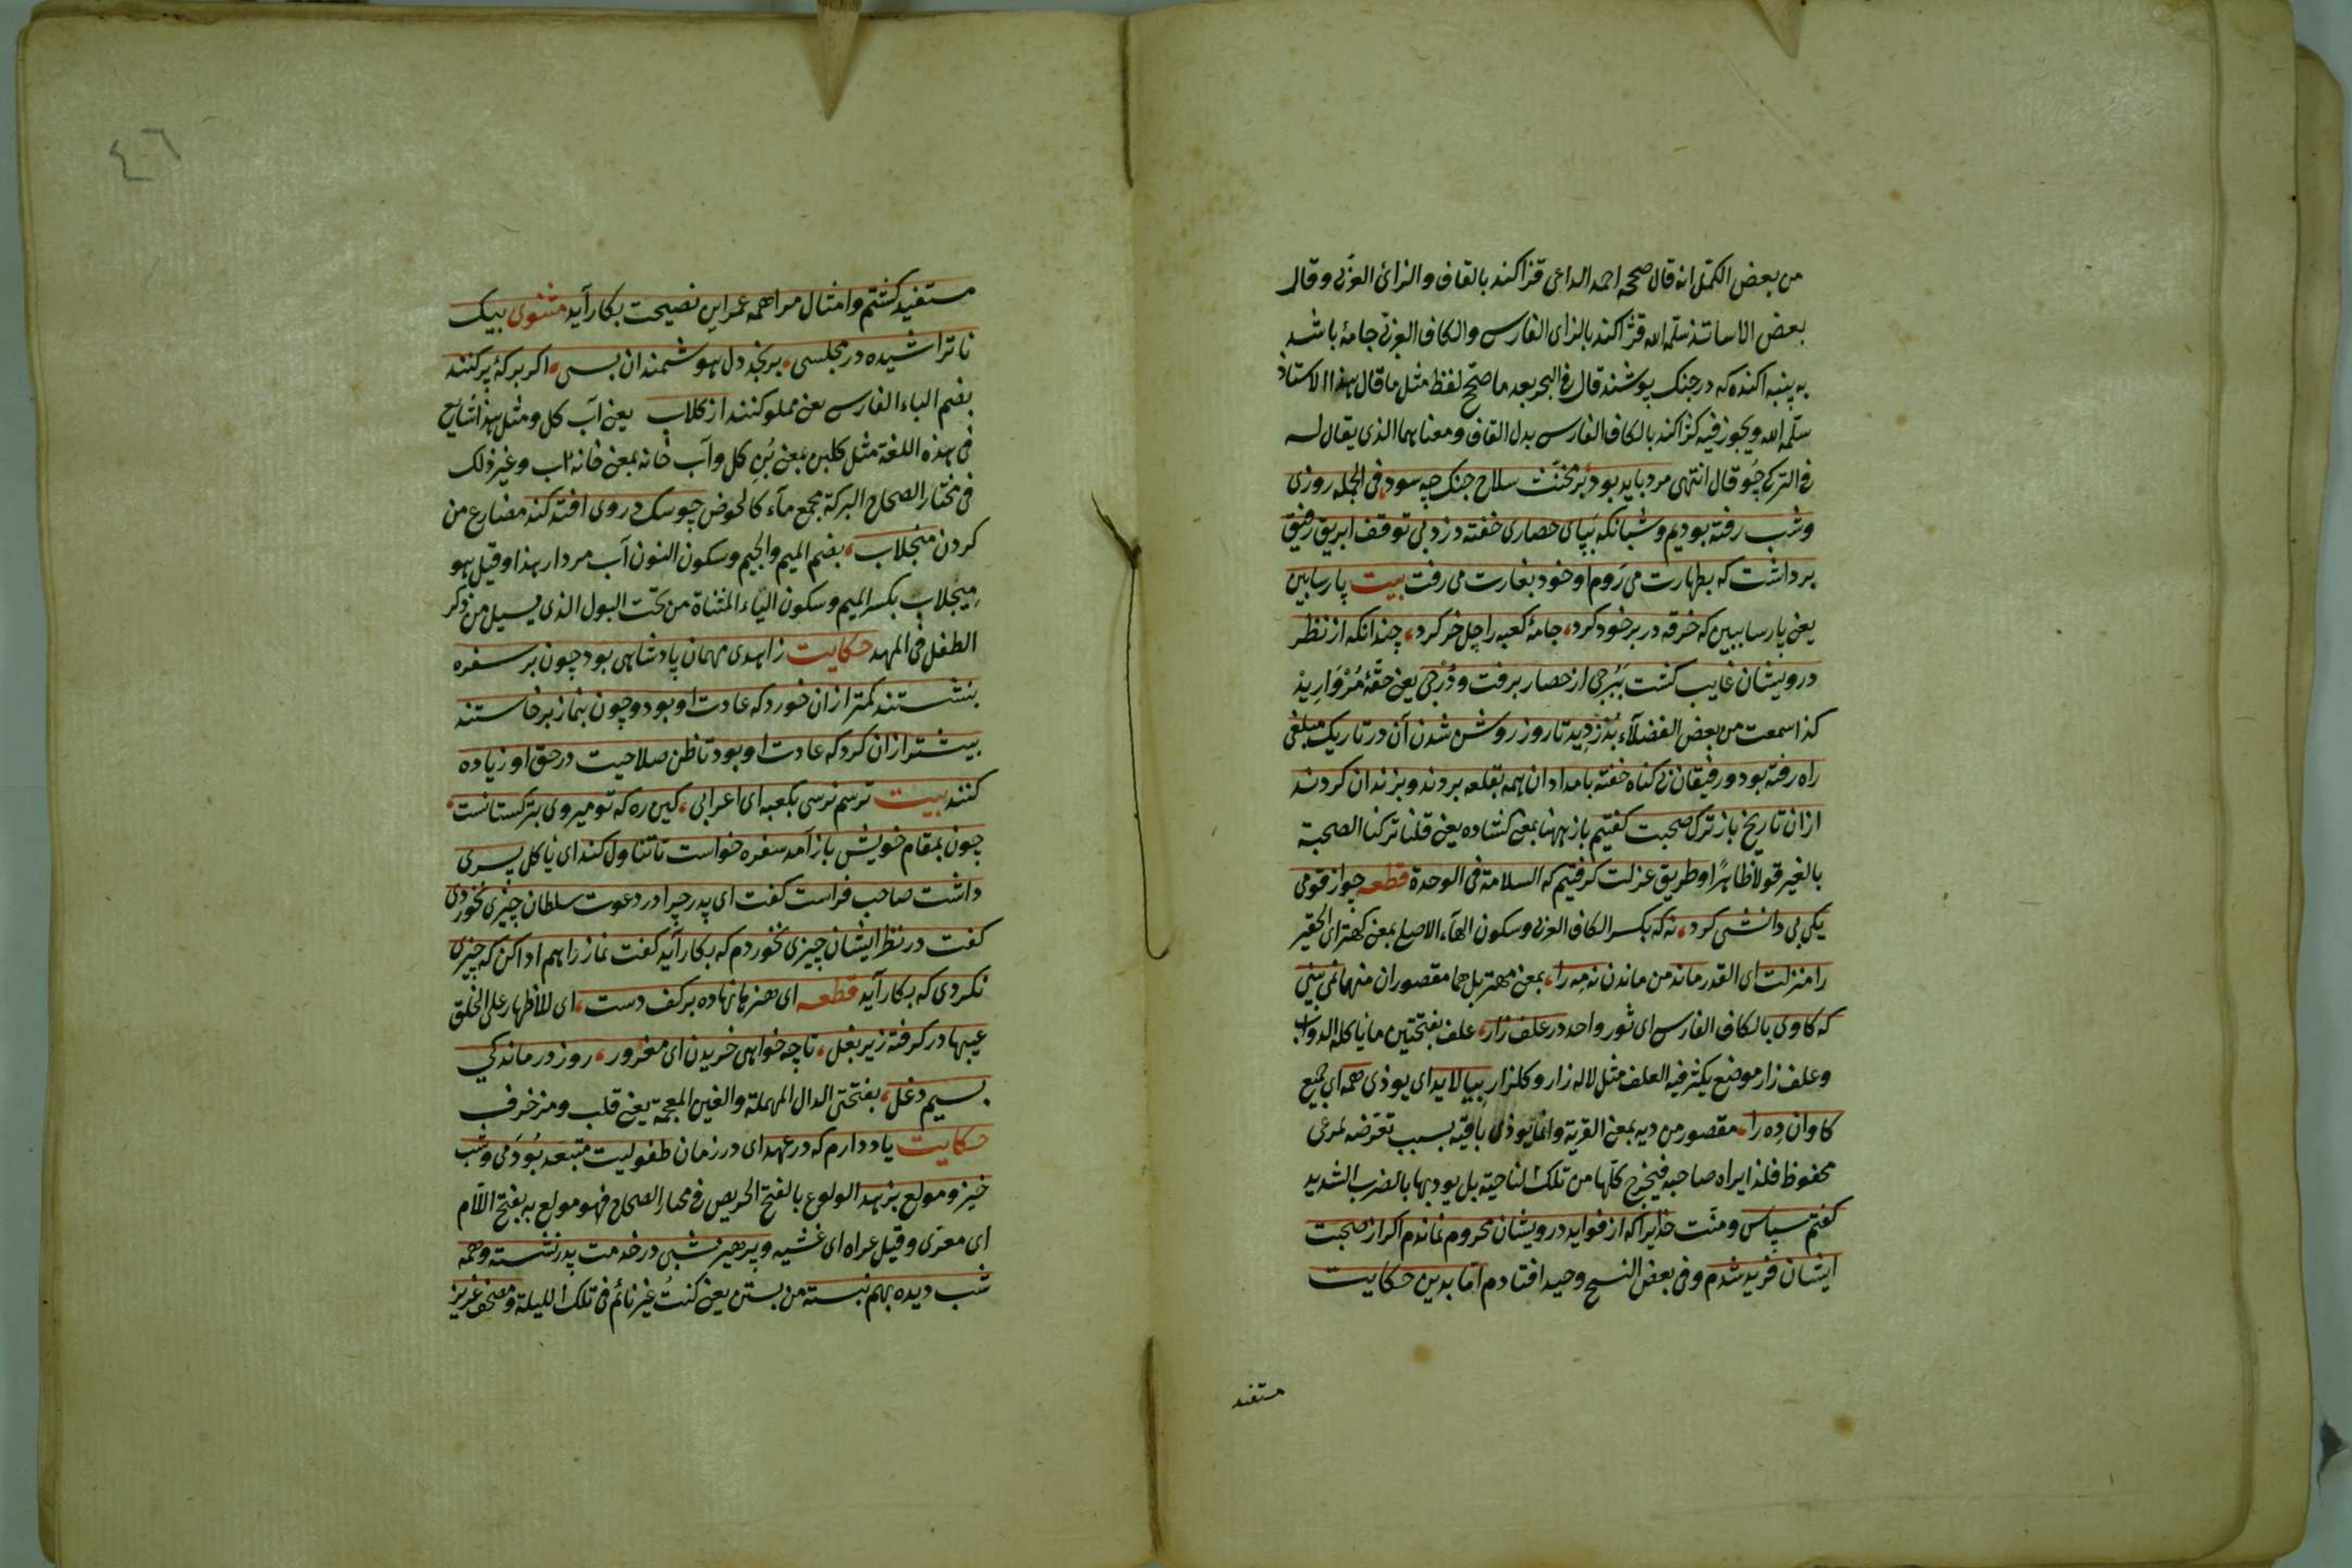 من بعض الكمّل انه قال صححه احمد الداعى قزاكند بالقاف والزائ العربى وقال
بعض الاساتذ سلّمه الله قژاكند بالزاى الفارسى والكاف العربى جامهٔ باشد
به پنبه اكنده كه در جنك پوشند قال فى البحر بعد ما صحّح لفظ مثل ما قال هذا الاستاذ
سلّمه الله ويجوز فيه كژاكند بالكاف الفارسى بدل القاف ومعناهما الذى يقال له
فى التركى چُوقال انتهى مرد بايد بود بر مخنّث سلاح جنك چه سود، فى الجمله روزى
وشب رفته بوديم وشبانكه بپاى حصارى خفته دزد بى توقف ابريق رفيق
برداشت كه بطهارت مى رَوم او خود بغارت مى رفت بيت پارسا بين
يعنى پارسا ببين كه خرقه در بر خود كرد، جامهٔ كعبه را جل خر كرد، چندانكه از نظر
درويشان غايب كشت بَبُرجى از حصار برفت ودُرجى يعنى حقّهٔ مُرْوَارِيدْ
كذا سمعت من بعض الفضلآء بُدُزْدِيد تا روز روشن شدن آن در تاريك مبلغى
راه رفته بود ورفيقان بى كناه خفته بامدادان همه بقلعه بردند وبزندان كردند
ازان تاريخ باز ترك صحبت كفتيم باز ههنا بمعنى كشاده يعنى قلنا تركنا الصحبة
بالغير قولا ظاهرًا وطريق عزلت كرفتيم كه السلامة فى الوحدة قطعه چو از قومى
يكى بى دانشى كرد، نه كه بكسر الكاف العربى وسكون الهآء الاصلى بمعنى كهتر اى الحقير
را منزلت اى القدر ماند من ماندن نه مِه را، بمعنى مهتر بل هما مقصوران منهما نمى بينى
كه كاوى بالكاف الفارسى اى ثور واحد در علف زار، علف بفتحتين ما ياكله الدواب
وعلف زار موضع يكثر فيه العلف مثل لاله زار وكلزار بيالايد اى يوذى همه اى جميع
كاوان ده را، مقصور من ديه بمعنى القرية وانما يوذى باقيه بسبب تعرّضه لمرعى
محفوظ فلذا يراه صاحبه فيخرج كلّها من تلك الناحية بل يودبها بالضرب الشديد
كفتم سپاس ومنّت خدايرا كه از فوايد درويشان محروم نماندم اكر از صحبت
ايشان فريد شدم وفى بعض النسخ وحيد افتادم امّا بدين حكايت
مستفيد
٤٦
مستفيد كشتم وامثال مرا همه عمر اين نصيحت بكار آيد مثنوى بيك
ناتراشيده در مجلسى، برنجد دل هوشمندان بسى، اكر بركهٔ پر كنند
بضم الباء الفارسى يعنى مملو كنند از كلاب يعنى آب كل ومثل هذا شايع
فى هذه اللغة مثل كلبن بمعنى بُنِ كل وآب خانه بمعنى خانه آب وغير ذلك
فى مختار الصحاح البركة مجمع مآء كالحوض چو سك در وى افتد كند مضارع من
كردن منجلاب، بضم الميم والجيم وسكون النون آب مردار هذا وقيل هو
مِيجلاب بكسر الميم وسكون الياء المثناة من تحت البول الذى يسيل من ذكر
الطفل فى المهد حكايت زاهدى مهمان پادشاهى بود چون بر سفره
بنشستند كمتر ازان خورد كه عادت او بود وچون بنماز برخاستند
بيشتر ازان كرد كه عادت او بود تا ظن صلاحيت در حق او زياده
كنند بيت ترسم نرسى بكعبه اى اعرابى، كين ره كه تو ميروى بتركستانست،
چون بمقام خويش باز آمد سفره خواست تا تناول كند اى ياكل پسرى
داشت صاحب فراست كفت اى پدر چرا در دعوت سلطان چيزى نخوردى
كفت در نظر ايشان چيزى نخوردم كه بكار آيد كفت نماز را هم ادا كن كه چيزى
نكردى كه بكار آيد قطعه اى هنرها نهاده بر كف دست، اى للاظهار على الخلق
عيبها در كرفته زير بغل، تا چه خواهى خريدن اى مغرور، روز درماندكى
بسيم دغل، بفتحتى الدال المهملة والغين المعجمة يعنى قلب ومزخرف
حكايت ياد دارم كه در عهد اى در زمان طفوليت متبعد بُودَمى وشب
خيز ومولع بزهد الولوع بالفتح الحريص فى مختار الصحاح فهو مولع به بفتح اللّام
اى مغرى وقيل عراه اى غشيه وپرهيز شبى در خدمت پدر نشسته وهمه
شب ديده بهم نبسته من بستن يعنى كنتُ غير نائم فى تلك الليلة ومصحف عزيز